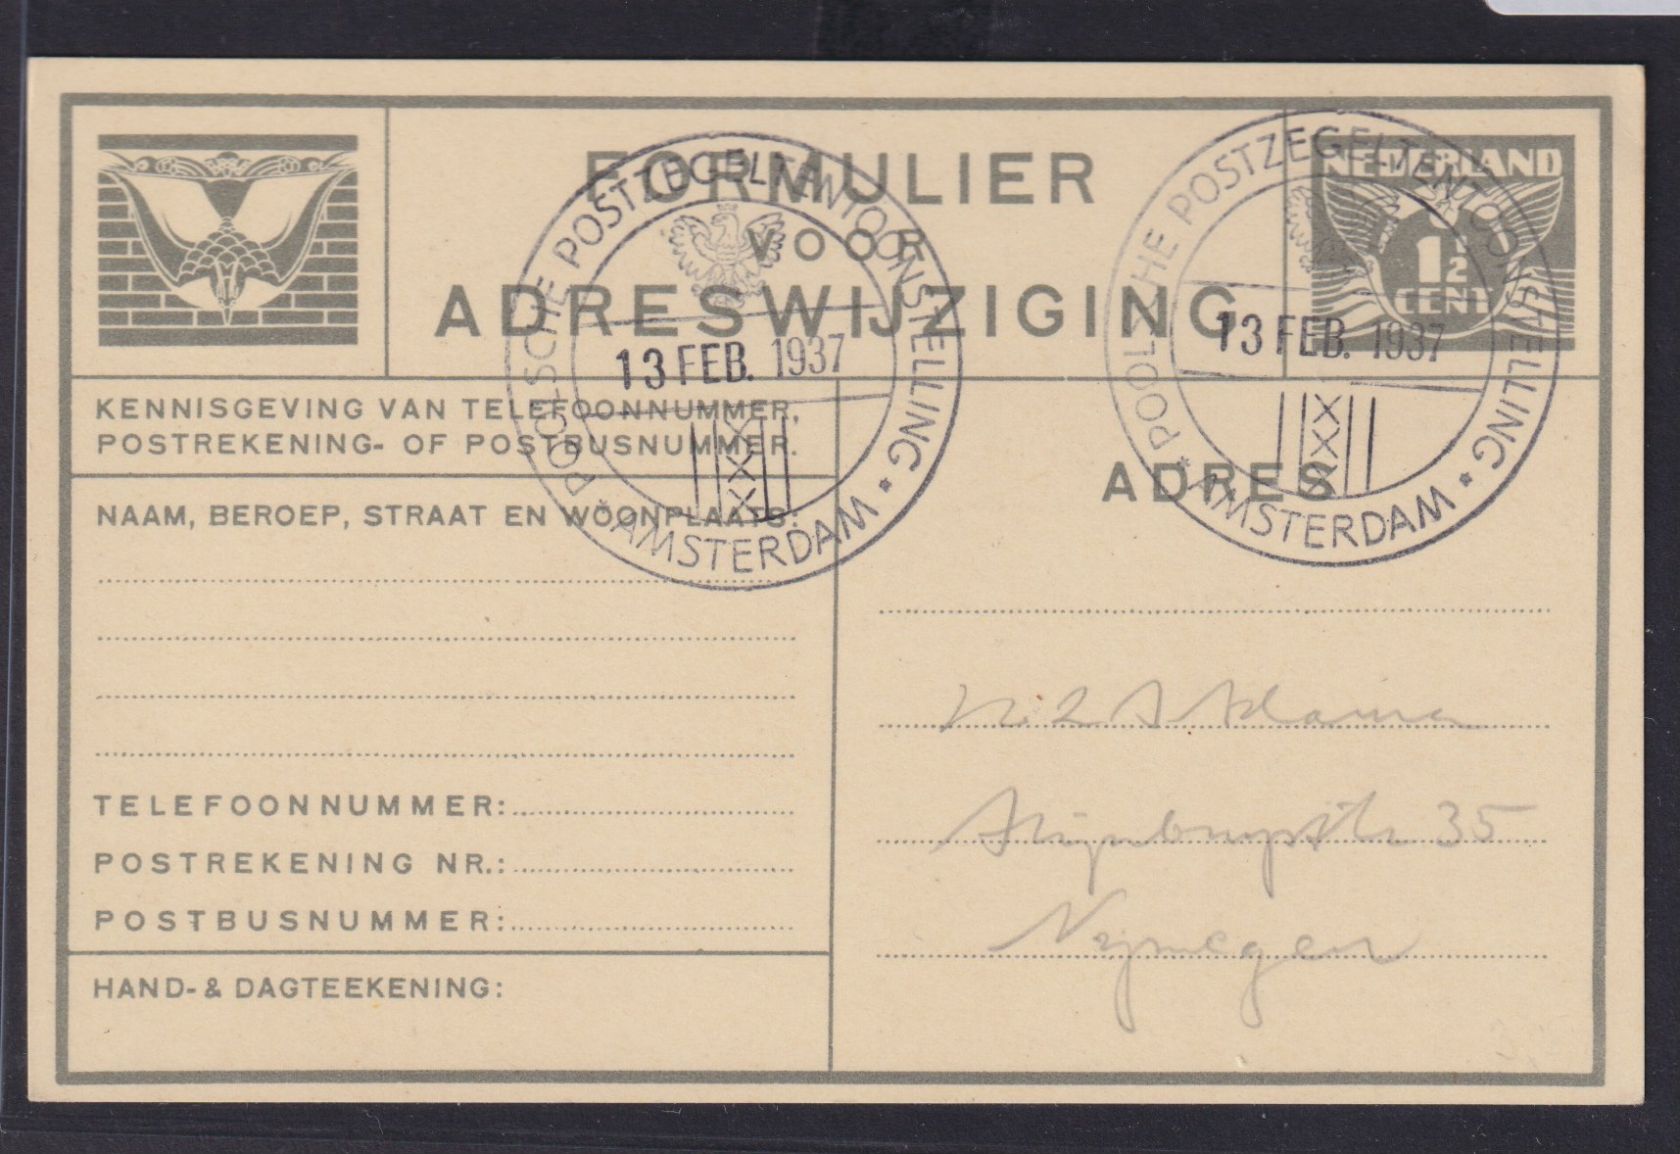 FORMULIER
VOOR
ADRESWIJZIGING
NEDERLAND
1½
CENT
POOLSCHE POSTZEGELTENTOONSTELLING
13 FEB. 1937
* AMSTERDAM *
POOLSCHE POSTZEGELTENTOONSTELLING
13 FEB. 1937
* AMSTERDAM *
KENNISGEVING VAN TELEFOONNUMMER,
POSTREKENING- OF POSTBUSNUMMER.
NAAM, BEROEP, STRAAT EN WOONPLAATS:
TELEFOONNUMMER:
POSTREKENING NR.:
POSTBUSNUMMER:
HAND- & DAGTEEKENING:
ADRES
Adama
35
Nijmegen